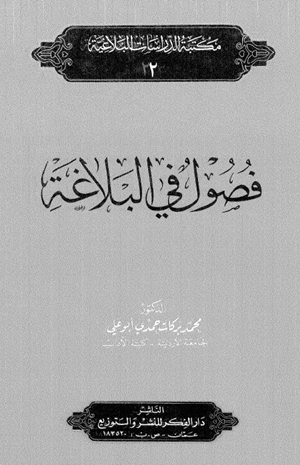 مكتبة الدراسات البلاغية
٢
فُصُولٌ في البَلاغَة
الدكتور
محمد بركات حمدي أبو علي
الجامعة الأردنية - كلية الآداب
الناشر
دار الفكر للنشر والتوزيع
عمّان - ص.ب: ١٨٣٥٢٠